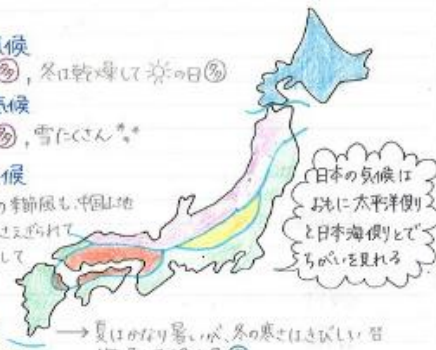 気候
㊕, 冬は乾燥して☀の日㊕
気候
㊕, 雪たくさん
気候
の季節風も、中国山地
さえぎられて
して
日本の気候は
おもに太平洋側
と日本海側とで
ちがいを見れる
→夏はかなり暑いが、冬の寒さはきびしい